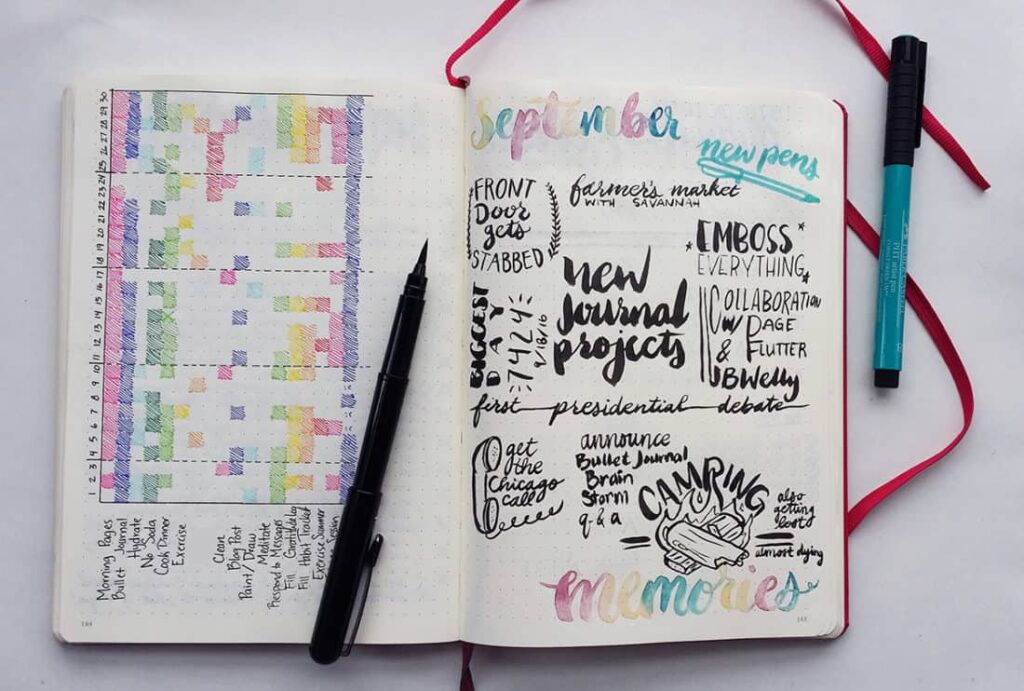 30
29
28
27
26
25
24
23
22
21
20
19
18
17
16
15
14
13
12
11
10
9
8
7
6
5
4
3
2
1
Morning Pages
Bullet Journal
Hydrate
No Soda
Cook Dinner
Exercise
Clean
Blog Post
Paint/Draw
Meditate
Respond to Messages
Fill Gratitude Log
Fill Habit Tracker
Exercise
184
September
new pens
FRONT
Door
gets
STABBED
farmer's market
WITH SAVANNAH
*EMBOSS*
EVERYTHING*
new
Journal
projects
BIGGEST
DAY
7424
9/18/16
COLLABORATION
W/ PAGE
& FLUTTER
BWelly
first presidential debate
get
the
Chicago
Call
announce
Bullet Journal
Brain
Storm
q & a
CAMPING
also
getting
lost
almost dying
memories
PITT artist pen